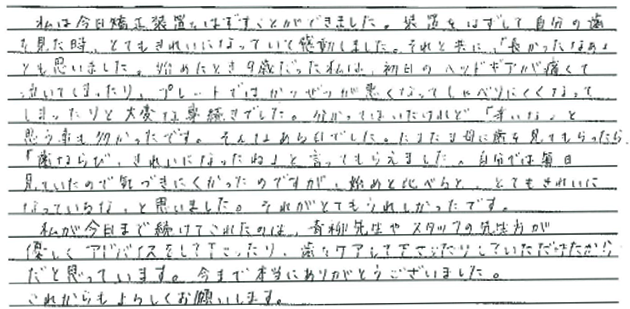 私は今日矯正装置をはずすことができました。装置をはずして自分の歯
を見た時、とてもきれいになっていて感動しました。それと共に、「長かったなぁ」
とも思いました。始めたとき9歳だった私は、初日のヘッドギアが痛くて
泣いてしまったり、プレートではかつぜつが悪くなってしゃべりにくくなって
しまったりと大変な事続きでした。分かってはいたけれど「辛いな」と
思う事も多かったです。そんなある日でした。たまたま母に歯を見てもらったら
「歯ならび、きれいになったね」と言ってもらえました。自分では毎日
見ていたので気づきにくかったのですが、始めと比べると、とてもきれいに
なっているな、と思いました。それがとてもうれしかったです。
私が今日まで続けてこれたのは、青柳先生やスタッフの先生方が
優しくアドバイスをして下さったり、歯をケアして下さったりしていただけたから
だと思っています。今まで本当にありがとうございました。
これからもよろしくお願いします。